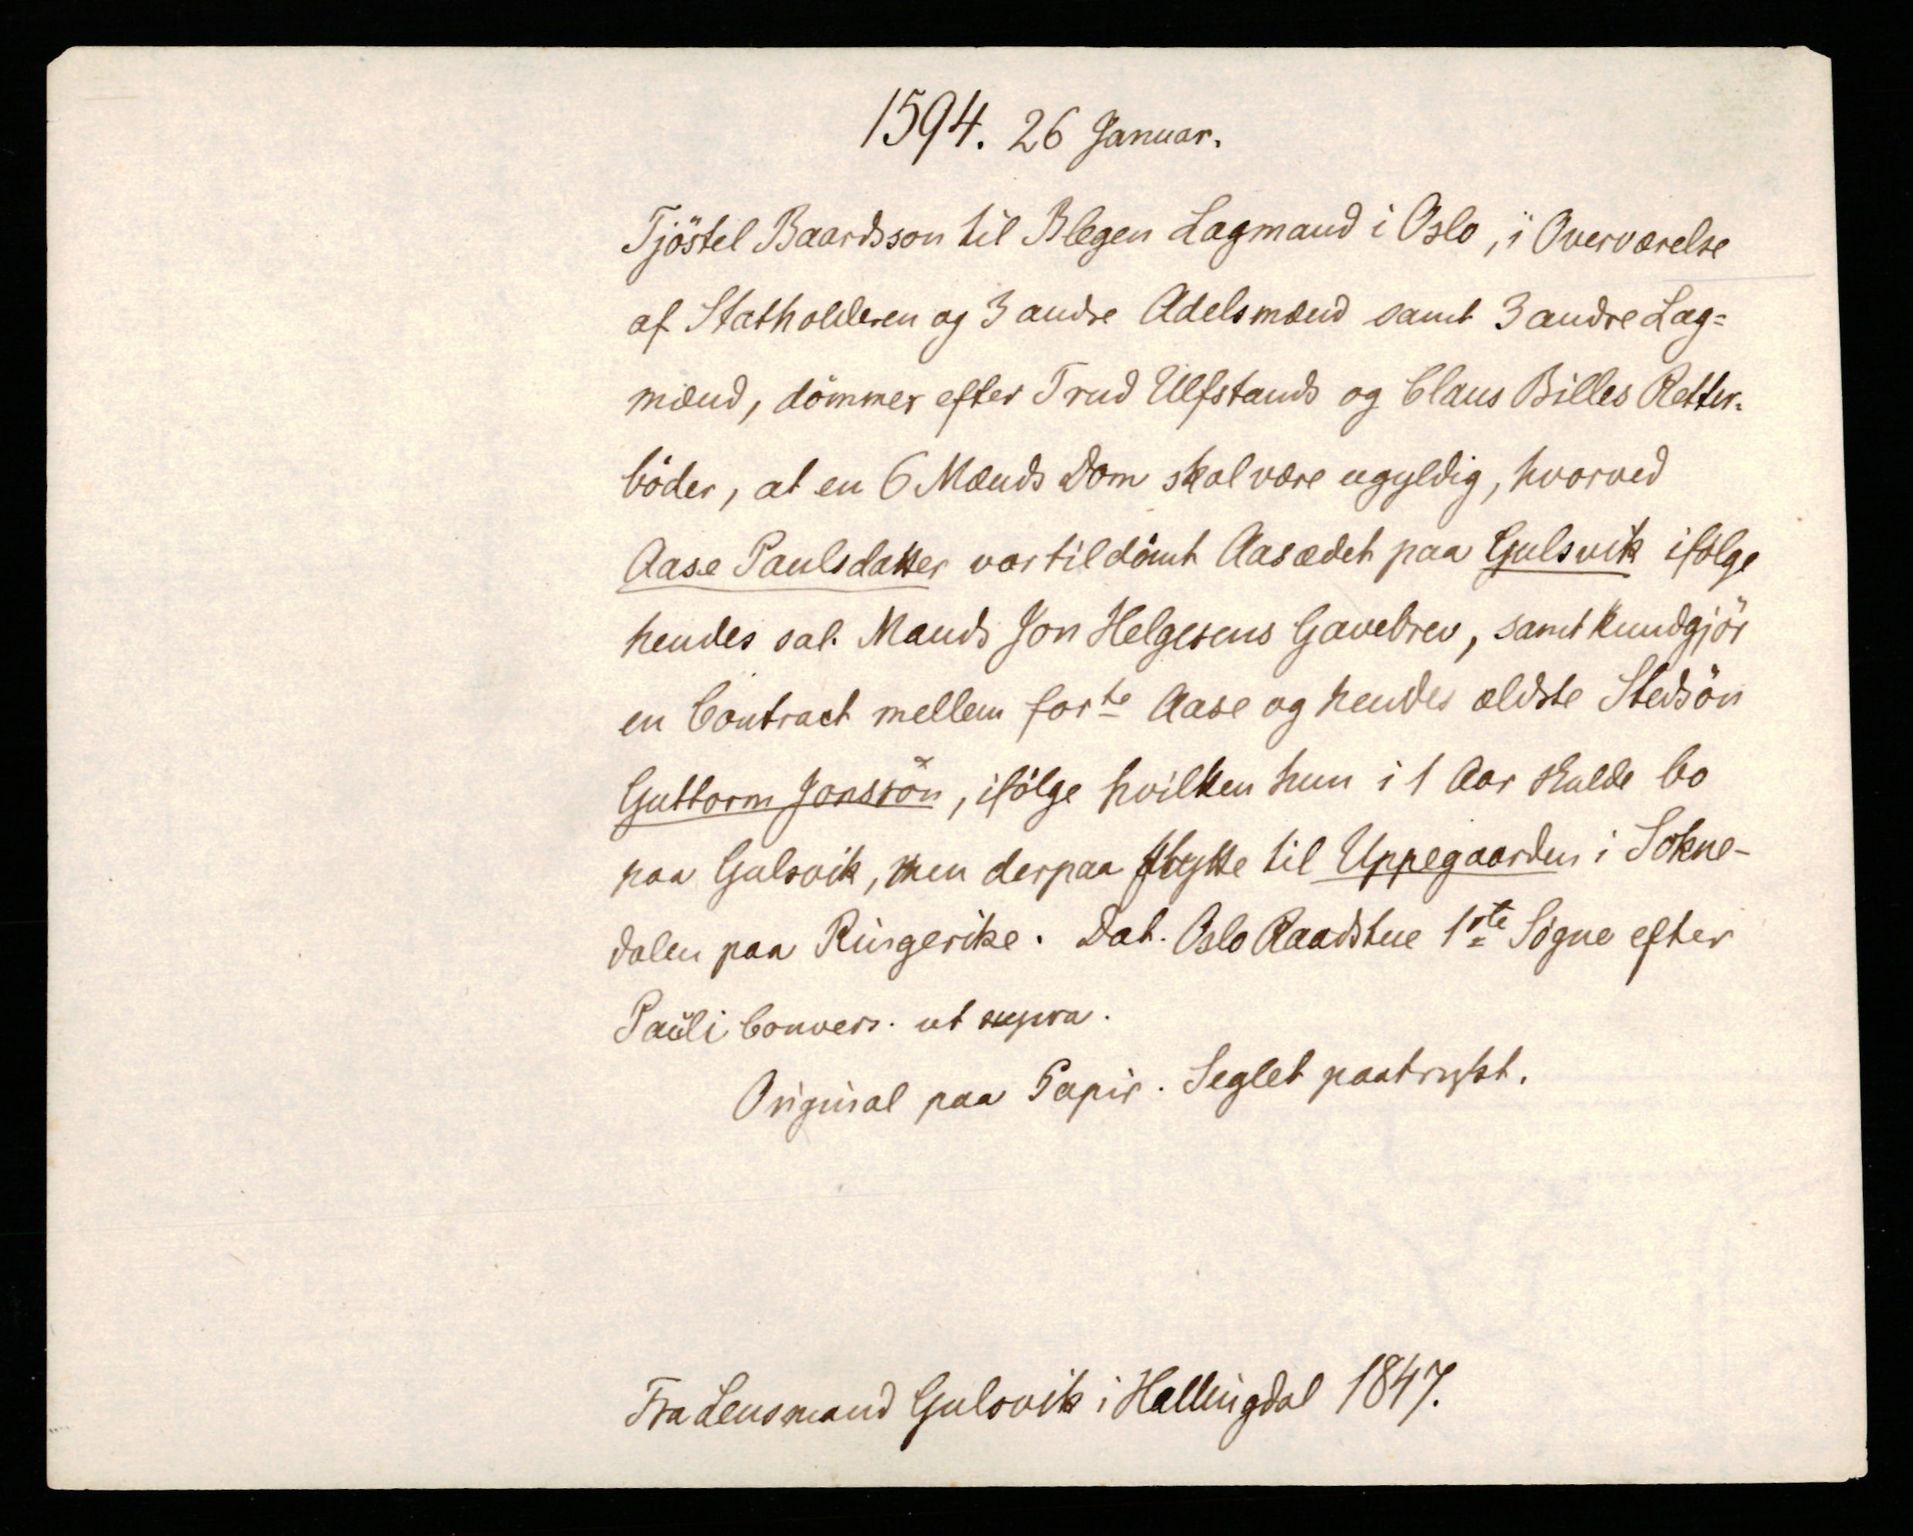 1594. 26 Januar.
Tjöstel Baardsson til Blegen Lagmand i Oslo, i Overværelse
af Statholderen og 3 andre Adelsmænd samt 3 andre Lag=
mænd, dömmer efter Trud Ulfstands og Claus Billes Retter-
böder, at en 6 Mænds Dom skal være ugyldig, hvorved
Aase Paulsdatter var tildömt Aasædet paa Gulsvik ifölge
hendes sal. Mands Jon Helgesens Gavebrev, samt kundgjör
en Contract mellem forte Aase og hendes ældste Stedsön
Guttorm Jonssön, ifölge hvilken hun i 1 Aar skulde bo
paa Gulsvik, men derpaa flytte til Uppegaarden i Sokne-
dalen paa Ringerike. Dat. Oslo Raadstue 1ste Sögne efter
Pauli Convers. ut supra.
Original paa Papir. Seglet paatrykt.
Fra Lensmand Gulsvik i Hallingdal 1847.